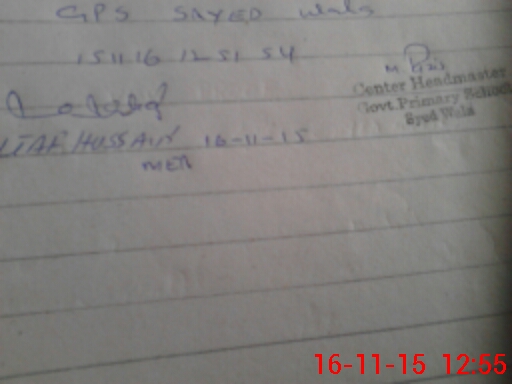 GPS SAYED Wala
15 11 16 12 51 54
Center Headmaster
Govt Primary School
Syed Wala
HUSSAIN 16-11-15
MEA
16-11-15 12:55